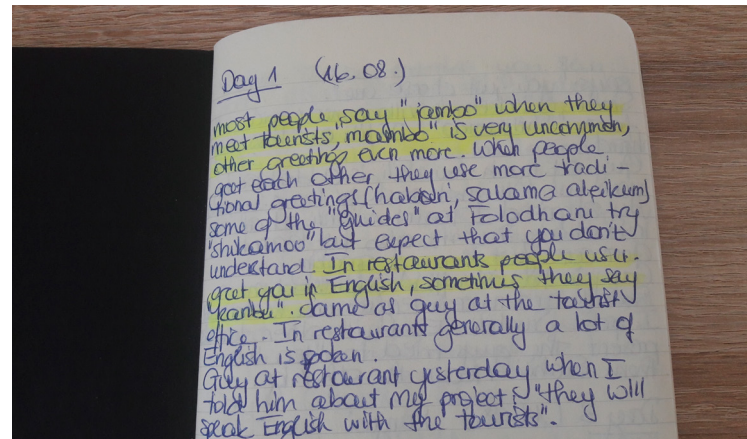 Day 1 (16. 08.)
most people say "jambo" when they
meet tourists, "mambo" is very uncommon,
other greetings even more. When people
greet each other they use more tradi-
tional greetings (habari, salama aleikum)
some of the "guides" at Folodhani try
"shikamoo" but expect that you don't
understand. In restaurants people usu.
greet you in English, sometimes they say
"jambo". Same as guy at the tourist
office. In restaurants generally a lot of
English is spoken.
Guy at restaurant yesterday when I
told him about my project: "they will
speak English with the tourists".